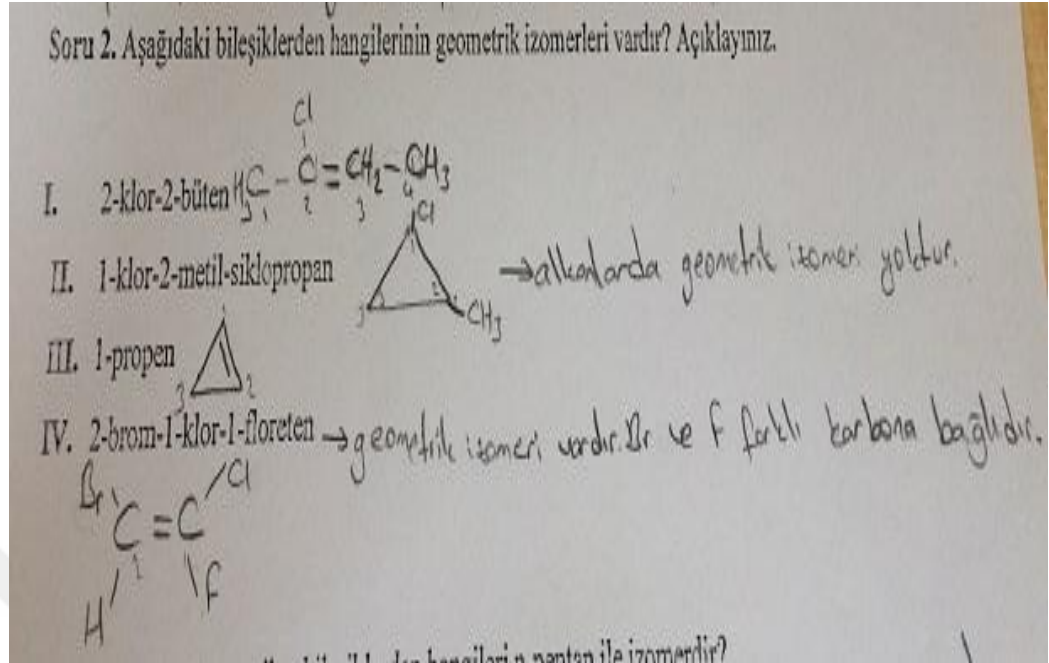 Soru 2. Aşağıdaki bileşiklerden hangilerinin geometrik izomerleri vardır? Açıklayınız.
Cl
I. 2-klor-2-büten H3C - C = CH2 - CH3
1 2 3 4
Cl
II. 1-klor-2-metil-siklopropan
→ alkanlarda geometrik izomeri yoktur.
1 2 3
CH3
III. 1-propen
1
3 2
IV. 2-brom-1-klor-1-floreten → geometrik izomeri vardır. Br ve F farklı karbona bağlıdır.
Br Cl
C = C
2 1
H F
hangileri n pentan ile izomerdir?